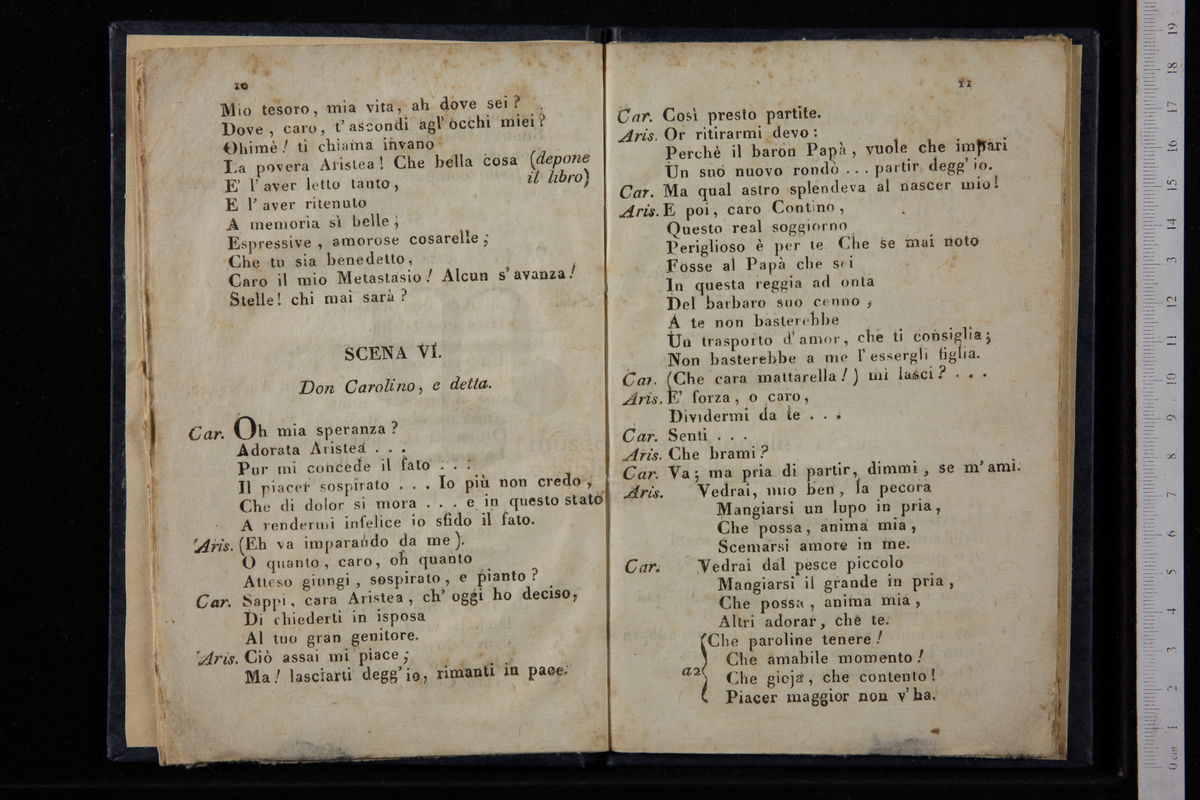 10
Mio tesoro, mia vita, ah dove sei?
Dove, caro, t'ascondi agl'occhi miei?
Ohimè! ti chiama invano
La povera Aristea! Che bella cosa (depone
E' l'aver letto tanto, il libro)
E l'aver ritenuto
A memoria sì belle,
Espressive, amorose cosarelle;
Che tu sia benedetto,
Caro il mio Metastasio! Alcun s'avanza!
Stelle! chi mai sarà?
SCENA VI.
Don Carolino, e detta.
Car. Oh mia speranza?
Adorata Aristea . . .
Pur mi concede il fato . . .
Il piacer sospirato . . . Io più non credo,
Che di dolor si mora . . . e in questo stato
A rendermi infelice io sfido il fato.
Aris. (Eh va imparando da me).
O quanto, caro, oh quanto
Atteso giungi, sospirato, e pianto?
Car. Sappi, cara Aristea, ch'oggi ho deciso,
Di chiederti in isposa
Al tuo gran genitore.
Aris. Ciò assai mi piace;
Ma! lasciarti degg'io, rimanti in pace.
11
Car. Così presto partite.
Aris. Or ritirarmi devo:
Perchè il baron Papà, vuole che impari
Un suo nuovo rondò . . . partir degg'io.
Car. Ma qual astro splendeva al nascer mio!
Aris. E poi, caro Contino,
Questo real soggiorno
Periglioso è per te Che se mai noto
Fosse al Papà che sei
In questa reggia ad onta
Del barbaro suo cenno,
A te non basterebbe
Un trasporto d'amor, che ti consiglia;
Non basterebbe a me l'essergli figlia.
Car. (Che cara mattarella!) mi lasci? . . .
Aris. E' forza, o caro,
Dividermi da te . . .
Car. Senti . . .
Aris. Che brami?
Car. Va; ma pria di partir, dimmi, se m'ami.
Aris. Vedrai, mio ben, la pecora
Mangiarsi un lupo in pria,
Che possa, anima mia,
Scemarsi amore in me.
Car. Vedrai dal pesce piccolo
Mangiarsi il grande in pria,
Che possa, anima mia,
Altri adorar, che te.
Che paroline tenere!
Che amabile momento!
a2 Che gioja, che contento!
Piacer maggior non v'ha.